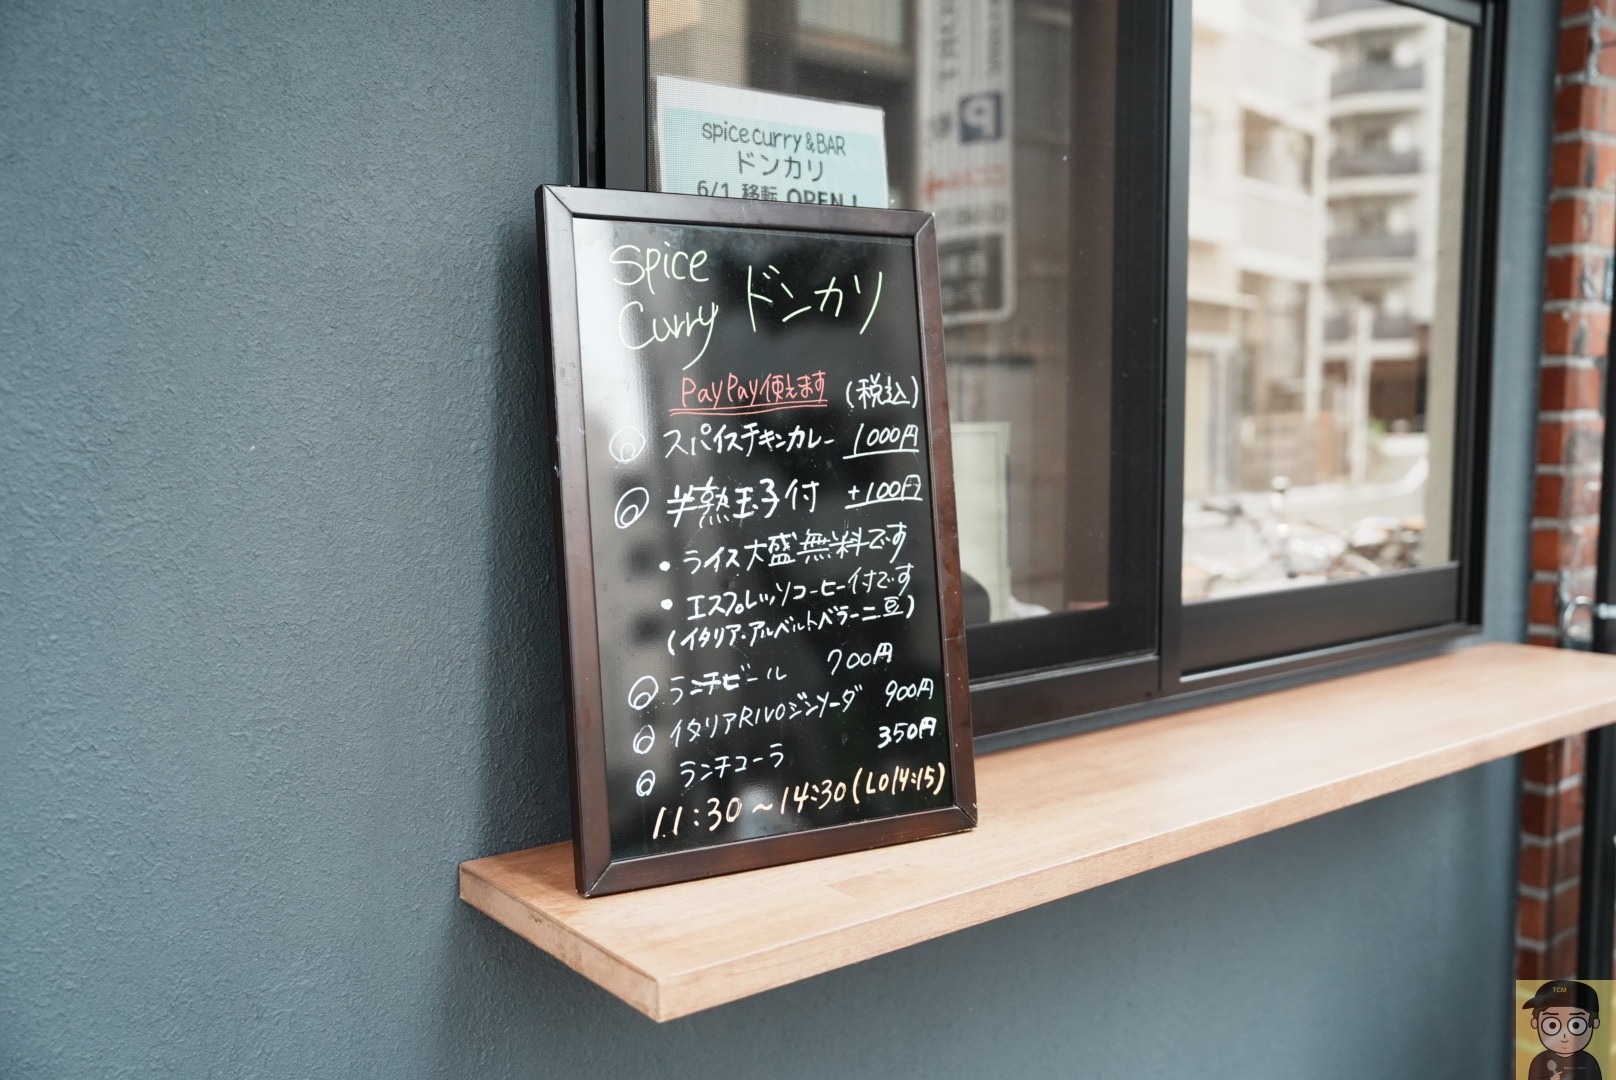 spice curry & BAR
ドンカリ
6/1 移転 OPEN！
P
Spice
Curry ドンカリ
PayPay使えます (税込)
スパイスチキンカレー 1000円
半熟玉子付 +100円
・ライス大盛無料です
・エスプレッソコーヒー付です
(イタリア・アルベルトベラーニ豆)
ランチビール 700円
イタリアRIVOジンソーダ 900円
ランチコーラ 350円
11:30～14:30(LO14:15)
TCM